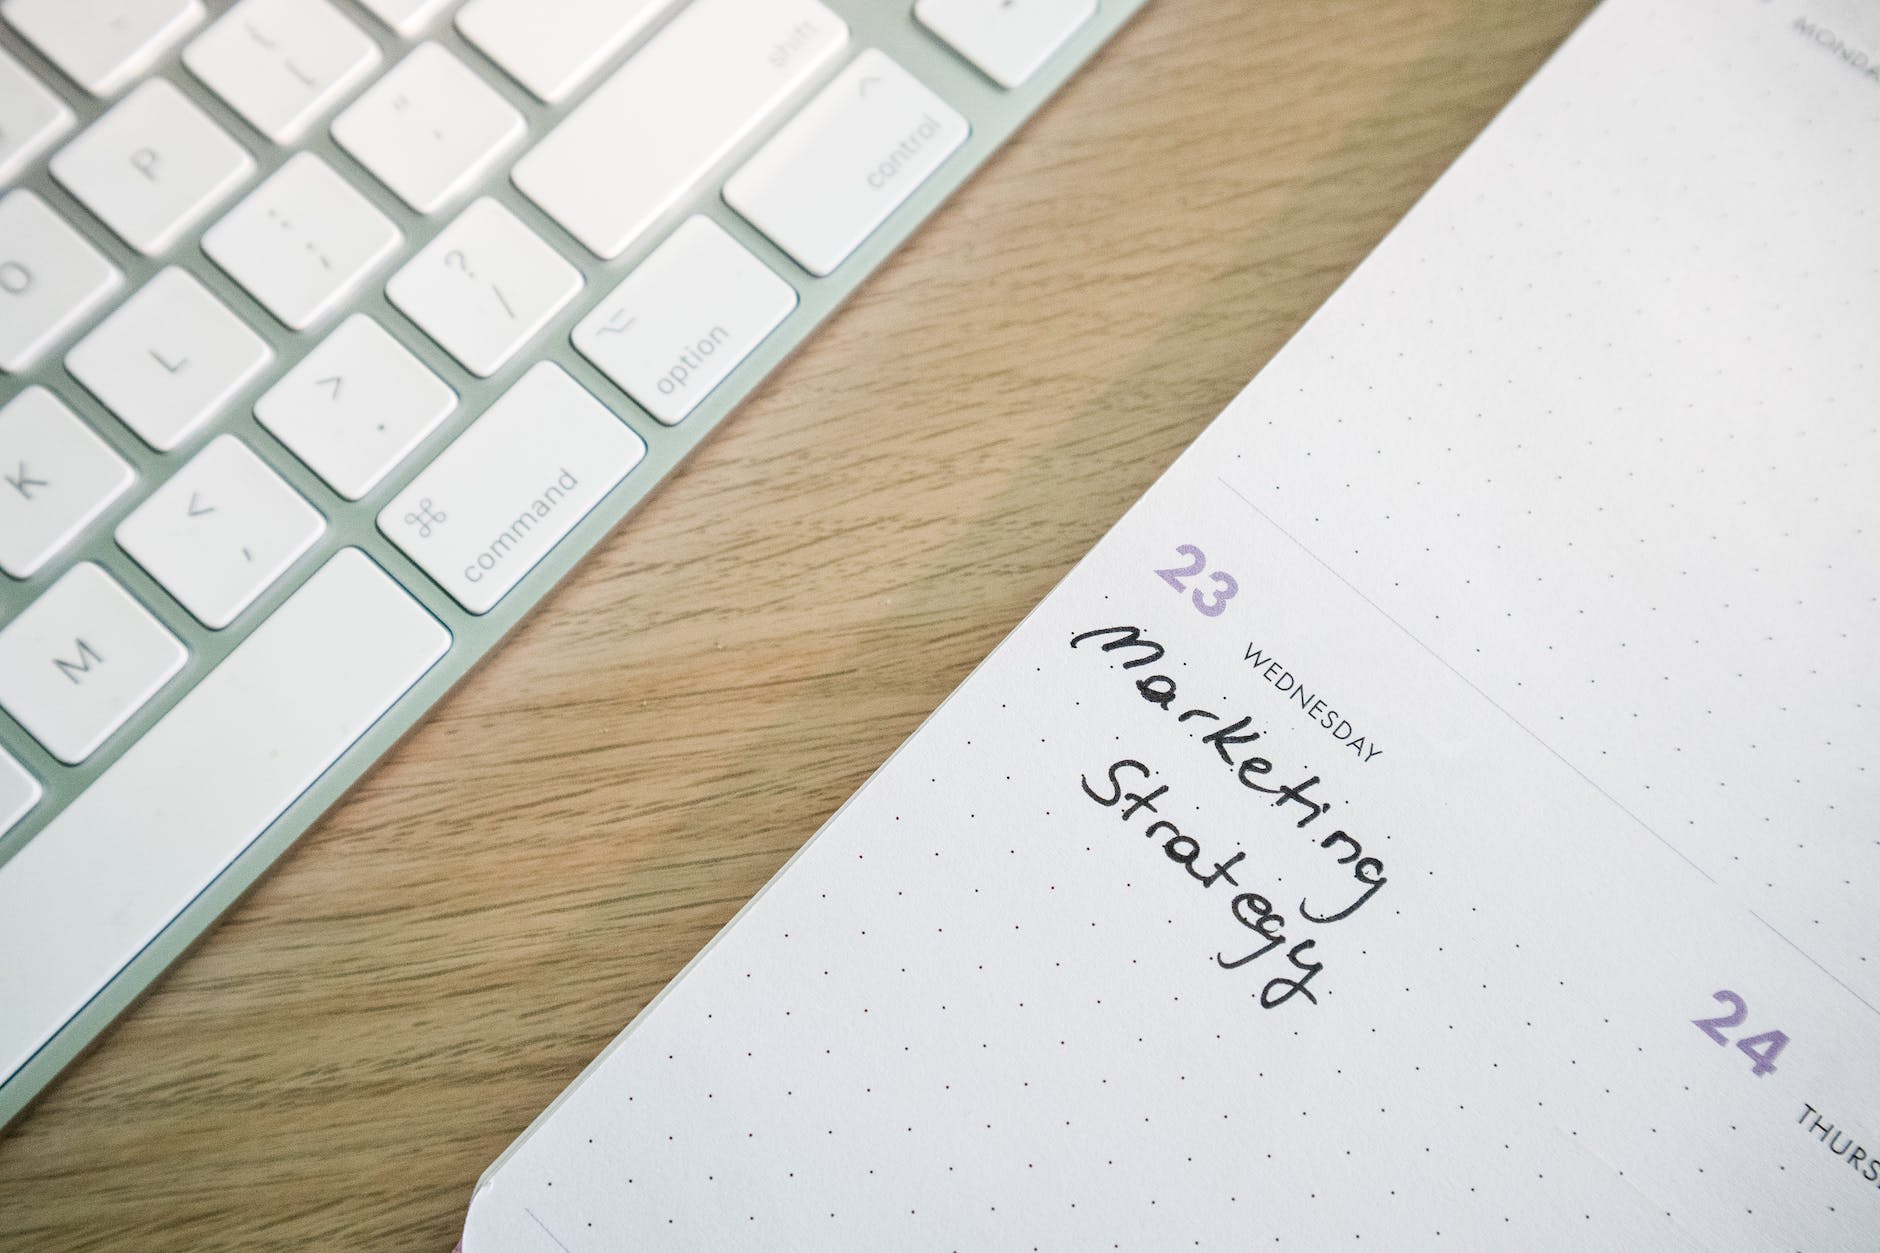 shift
control
option
command
P
O
L
K
M
? /
>
.
<
,
MONDA
23
WEDNESDAY
Marketing
Strategy
24
THURS